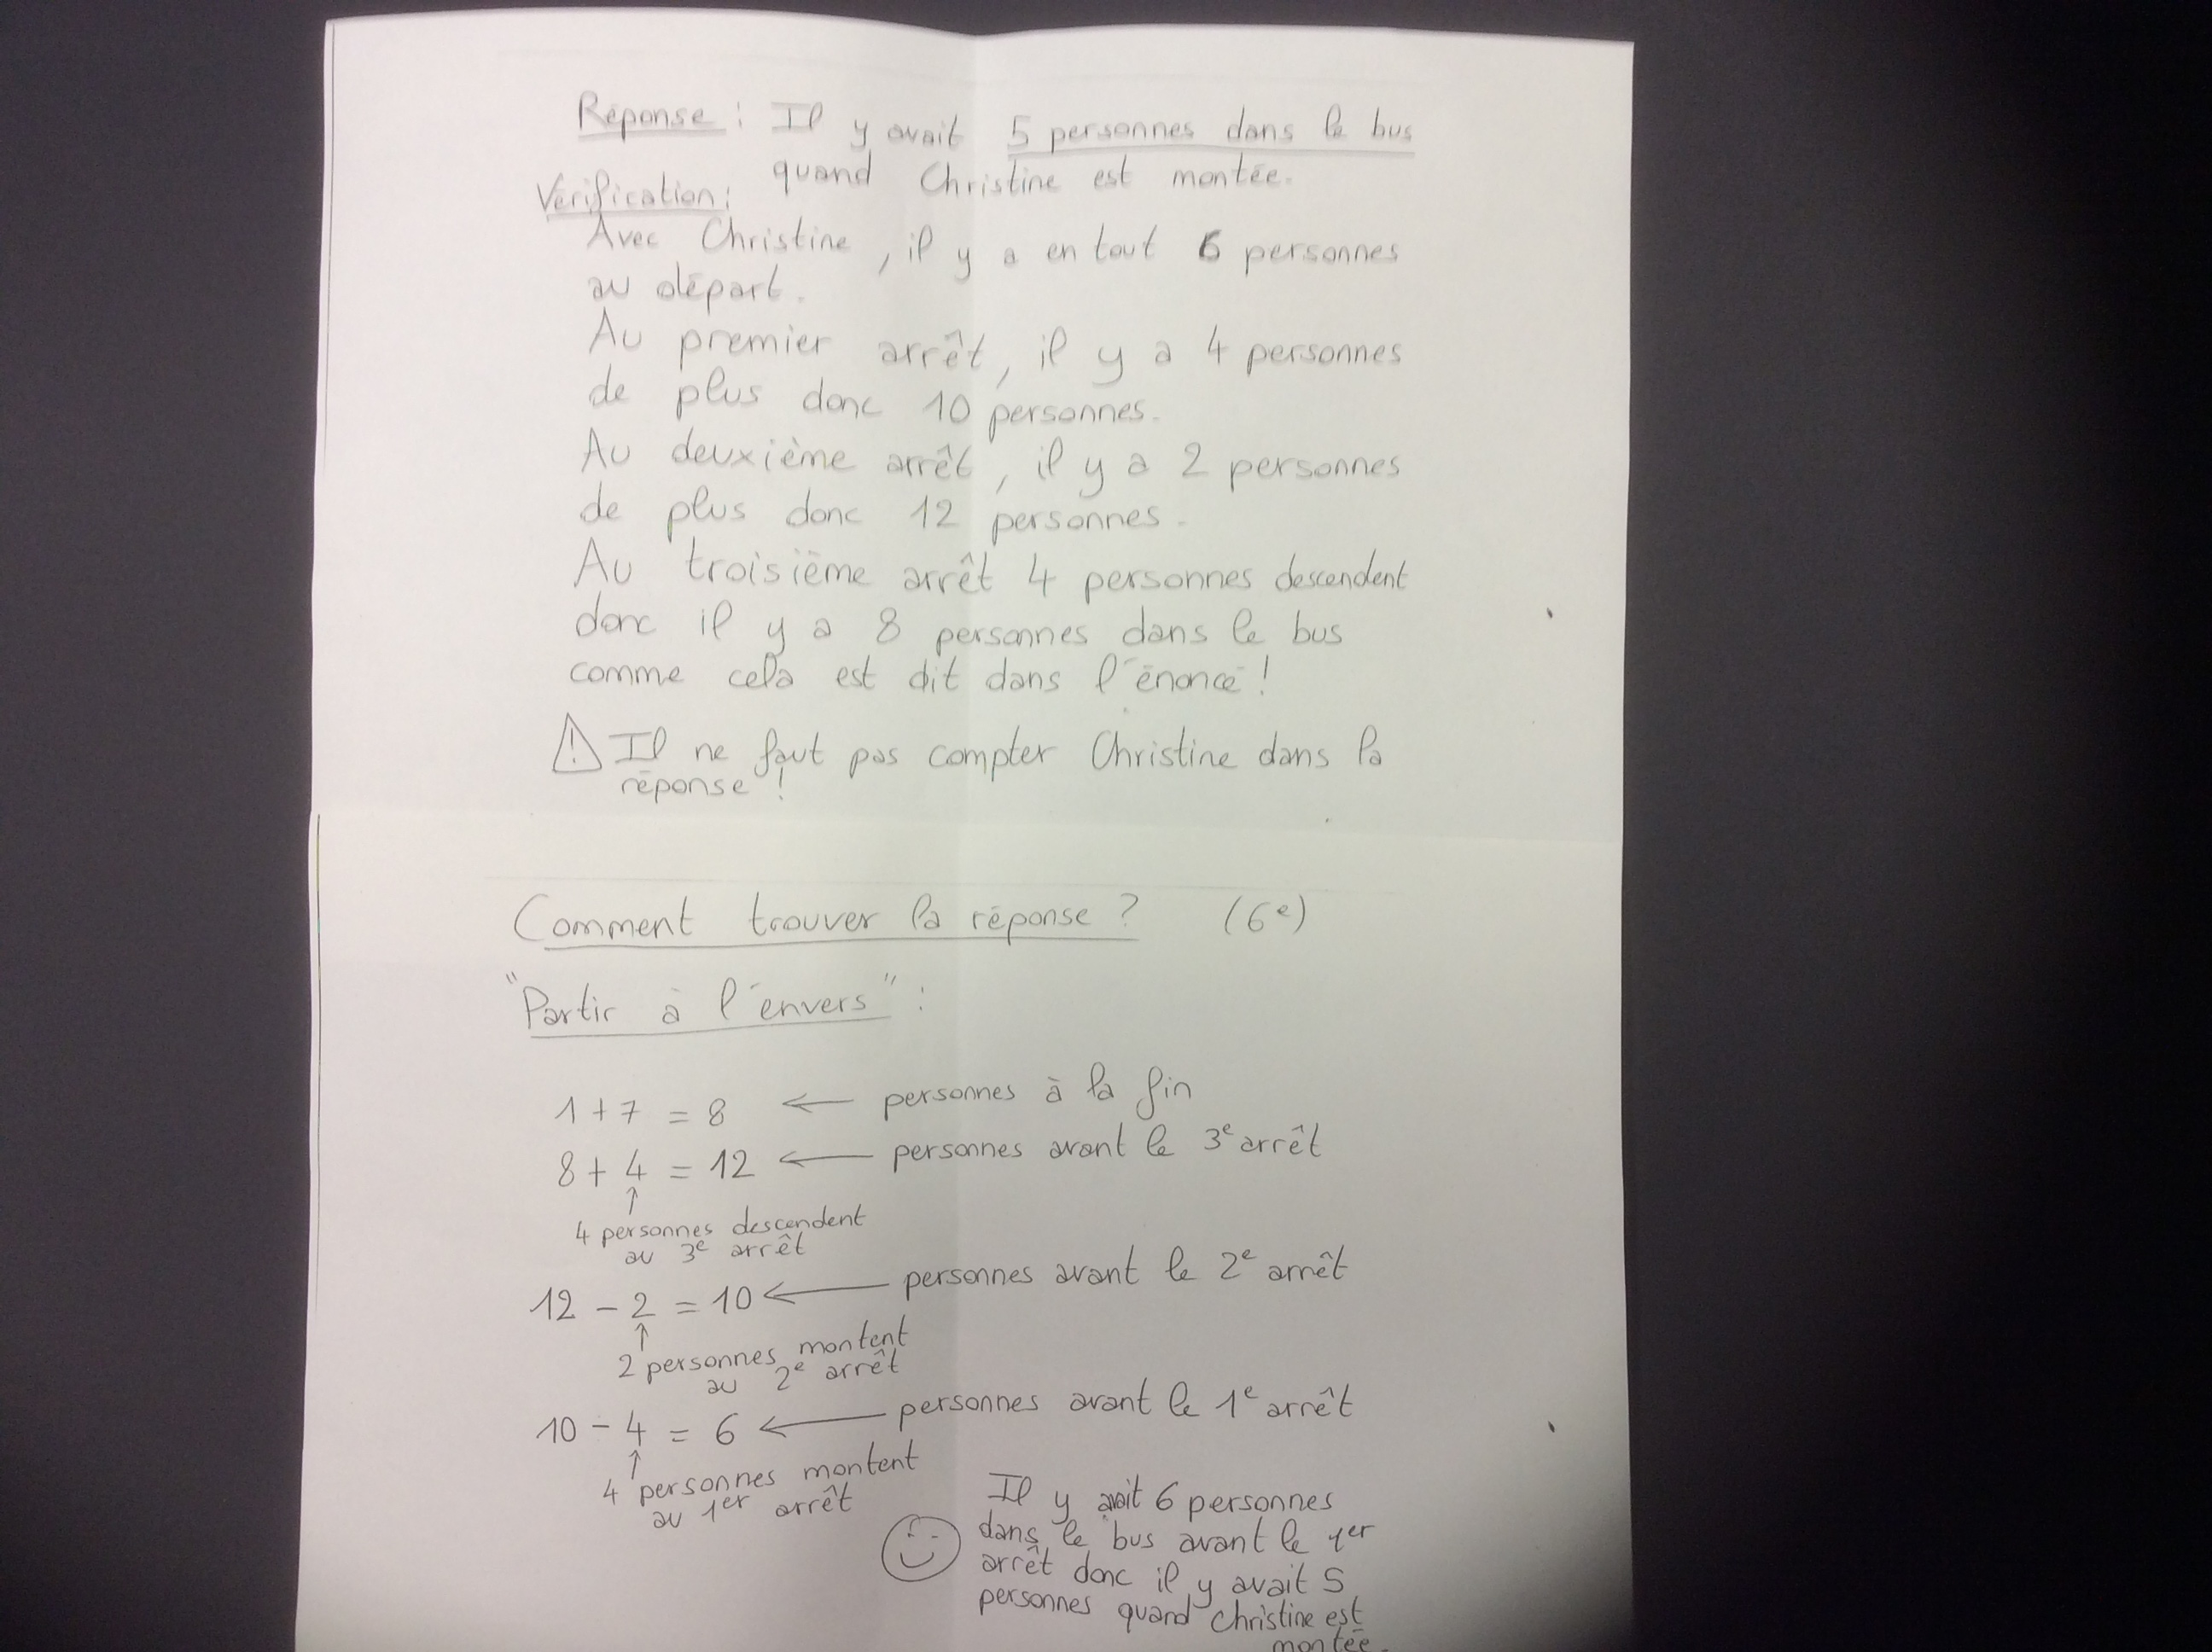 Réponse : Il y avait 5 personnes dans le bus
quand Christine est montée.
Vérification :
Avec Christine, il y a en tout 6 personnes
au départ.
Au premier arrêt, il y a 4 personnes
de plus donc 10 personnes.
Au deuxième arrêt, il y a 2 personnes
de plus donc 12 personnes.
Au troisième arrêt 4 personnes descendent
donc il y a 8 personnes dans le bus
comme cela est dit dans l'énoncé !
⚠ Il ne faut pas compter Christine dans la
réponse !
Comment trouver la réponse ? (6e)
"Partir à l'envers" :
1 + 7 = 8 ← personnes à la fin
8 + 4 = 12 ← personnes avant le 3e arrêt
↑
4 personnes descendent
au 3e arrêt
12 - 2 = 10 ← personnes avant le 2e arrêt
↑
2 personnes montent
au 2e arrêt
10 - 4 = 6 ← personnes avant le 1e arrêt
↑
4 personnes montent
au 1er arrêt
Il y avait 6 personnes
dans le bus avant le 1er
arrêt donc il y avait 5
personnes quand Christine est
montée.